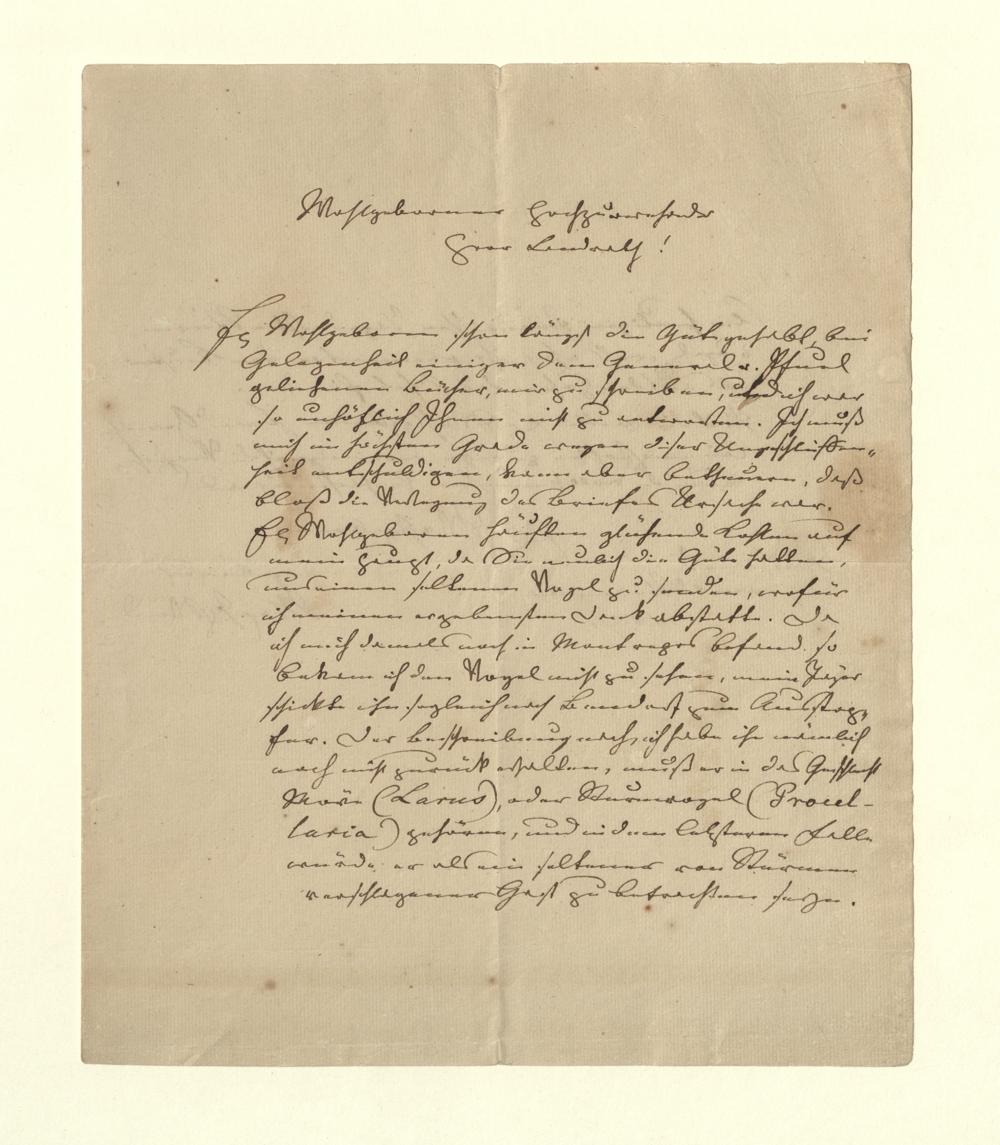 Wohlgeborner Hochzuverehrender
Herr Landrath!
Ew Wohlgeboren schon längst die Güte gehabt, bei
Gelegenheit einiger dem General v. Pfuel
geliehenen Bücher, mir zu schreiben, und ich war
so unhöflich Ihnen nicht zu antworten. Ich muß
mich im höchsten Grade wegen dieser Ungeschliffen-
heit entschuldigen, kann aber betheuern, daß
bloß die Verlegung des Briefes Ursache war.
Ew Wohlgeboren häuften glühende Kohlen auf
mein Haupt, da Sie neulich die Güte hatten,
uns einen seltenen Vogel zu senden, wofür
ich meinen ergebensten Dank abstatte. Da
ich mich damals noch in Montrepos befand so
bekam ich den Vogel nicht zu sehen, mein Jäger
schickte ihn sogleich nach Bendorf zum Ausstop-
fer. Der Beschreibung nach, ich habe ihn nämlich
noch nicht zurück erhalten, muß er in das Geschlecht
Möve (Larus), oder Sturmvogel (Procel-
laria) gehören, und in dem letzteren Falle
würde er als ein seltener von Stürmen
verschlagener Gast zu betrachten seyn.